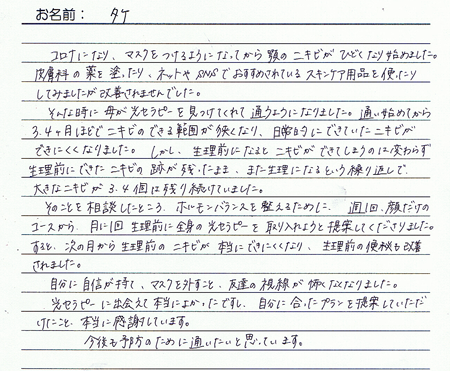 お名前： タケ
コロナになり、マスクをつけるようになってから顎のニキビがひどくなり始めました。
皮膚科の薬を塗ったり、ネットやSNSでおすすめされているスキンケア用品を使ったり
してみましたが改善されませんでした。
そんな時に母が光セラピーを見つけてくれて通うようになりました。通い始めてから
3.4ヶ月ほどでニキビのできる範囲が狭くなり、日常的にできていたニキビが
できにくくなりました。しかし、生理前になるとニキビができてしまうのは変わらず
生理前にできたニキビの跡が残ったまま、また生理になるという繰り返しで、
大きなニキビが3.4個は残り続けていました。
そのことを相談したところ、ホルモンバランスを整えるために、週1回、顔だけの
コースから、月に1回生理前に全身の光セラピーを取り入れようと提案してくださりました。
すると、次の月から生理前のニキビが本当にできにくくなり、生理前の便秘も改善
されました。
自分に自信が持て、マスクを外すこと、友達の視線が怖くなくなりました。
光セラピーに出会えて本当によかったですし、自分に合ったプランを提案していただ
けたこと、本当に感謝しています。
今後も予防のために通いたいと思っています。